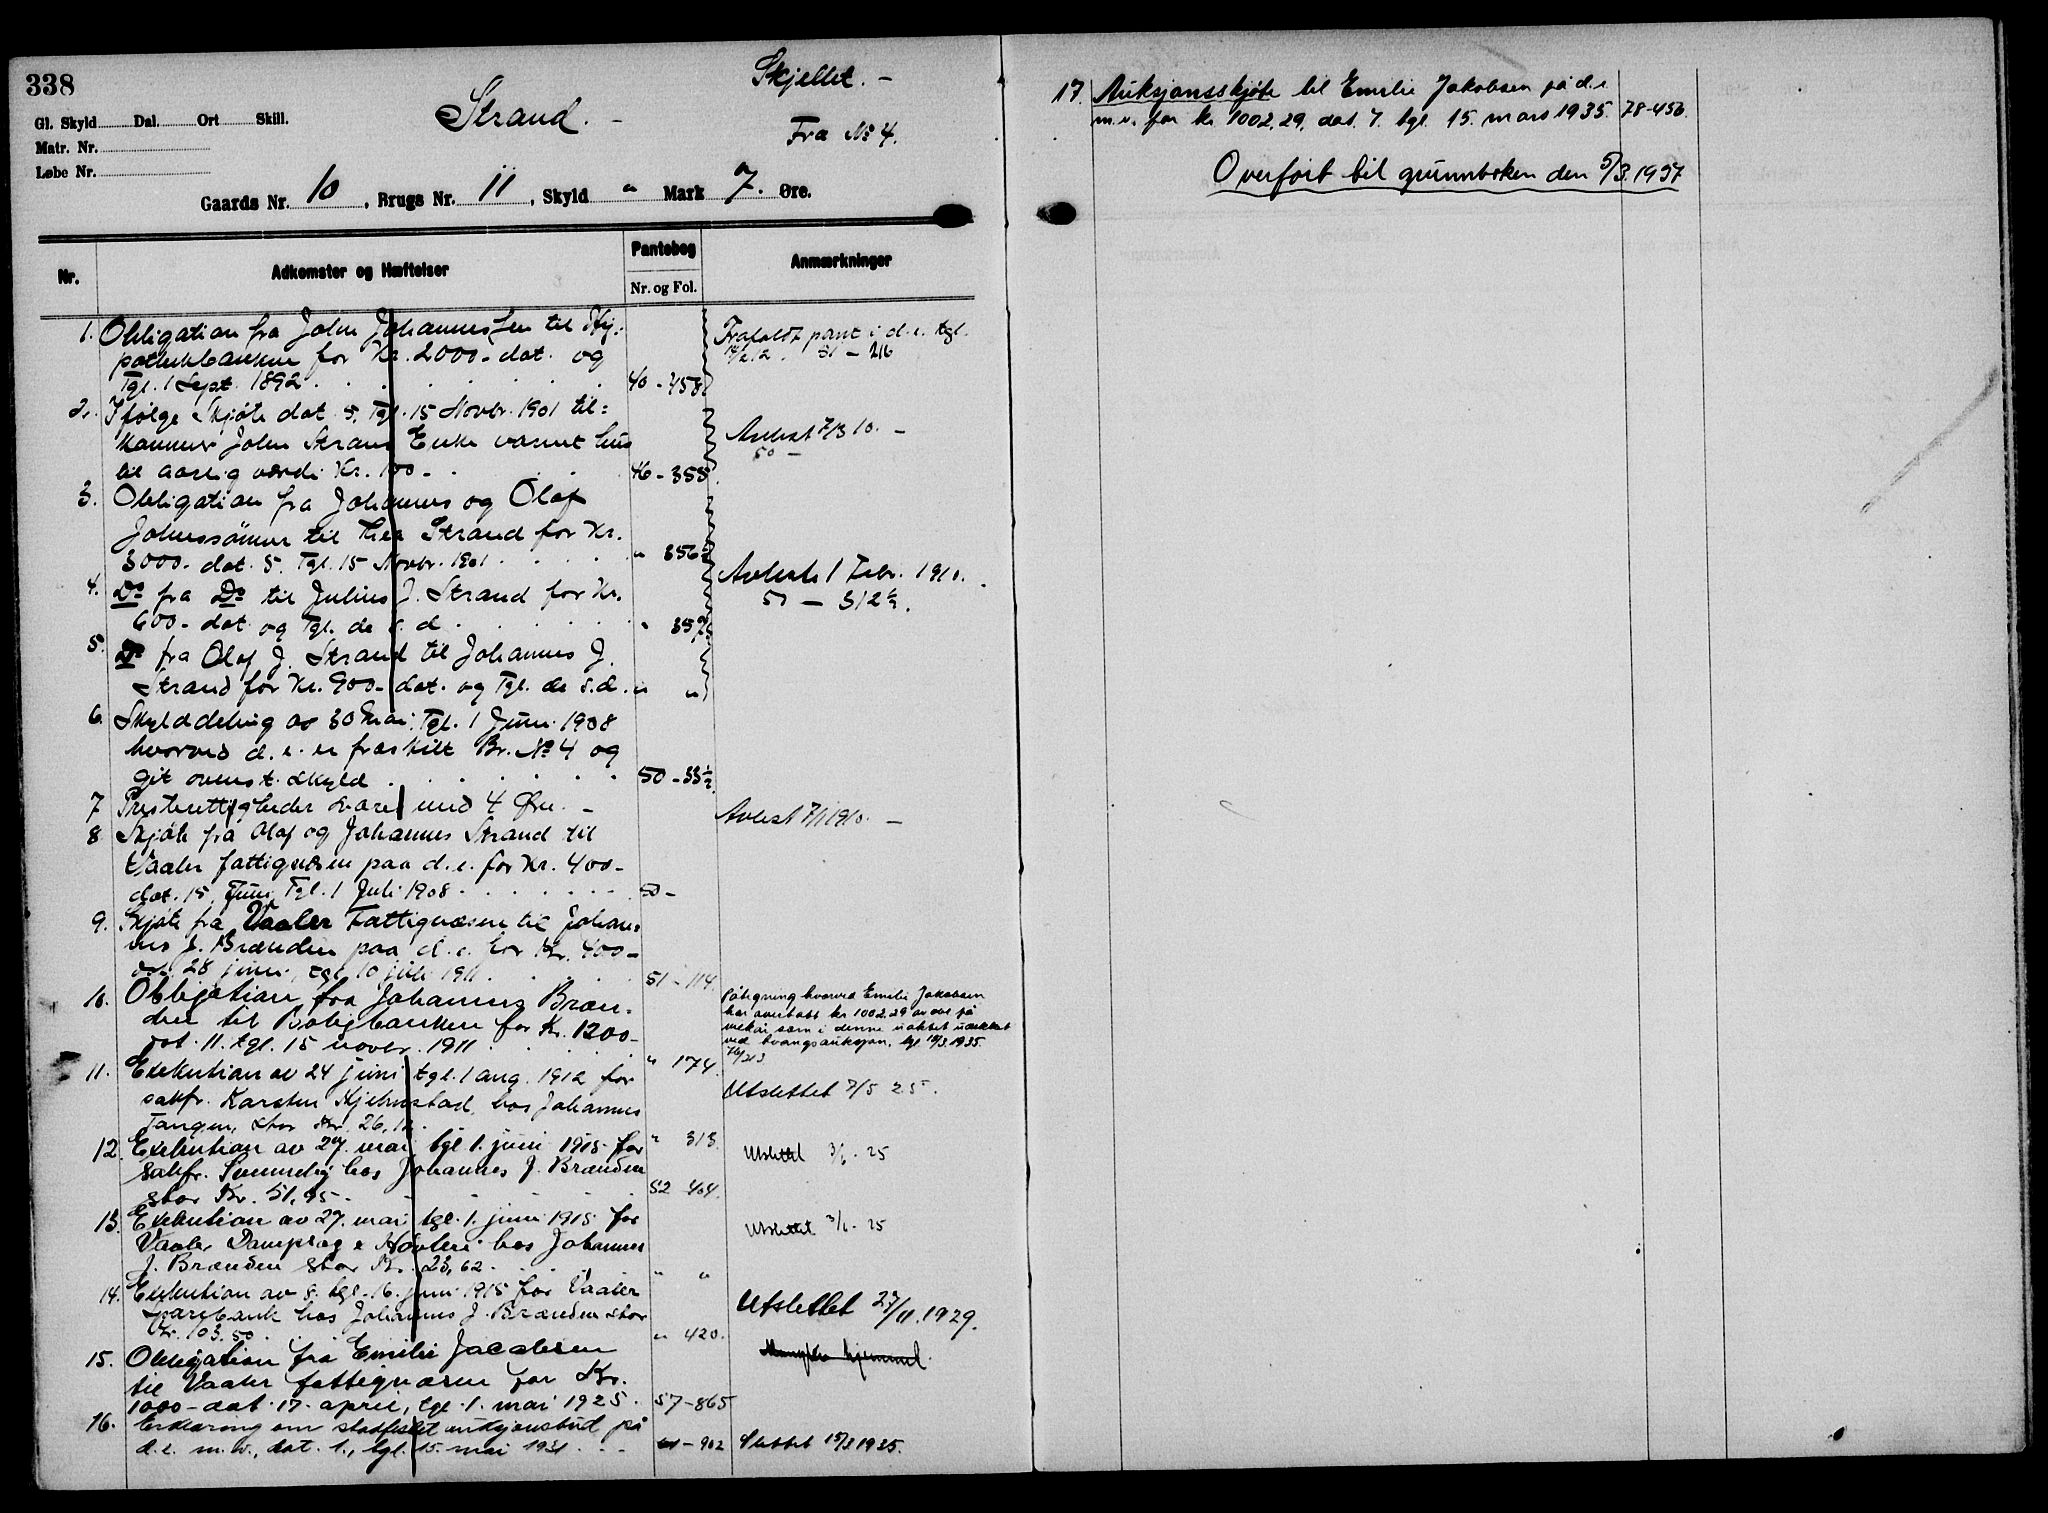 338
Gl. Skyld Dal. Ort Skill.
Matr. Nr.
Løbe Nr.
Strand. -
Skjellet. -
Fra No 4.
Gaards Nr. 10, Brugs Nr. 11, Skyld " Mark 7. Øre.
Nr. Adkomster og Hæftelser Pantebog Nr. og Fol. Anmærkninger
1. Obligation fra John Johannessen til Hy-
pothekbanken for Kr. 2000- dat. og
Tgl. 1 Sept. 1892. 40-458
Frafaldt pant i d.e. tgl.
51-216
2. Ifølge Skjøte dat. 5. Tgl. 15 Novbr. 1901 til-
kommer John Strand Enke varmt hus
til aarlig værdi Kr. 100- 46-355
Avlest 7/3 10. -
50-
3. Obligation fra Johannes og Olaf
Johnssønner til Strand for Kr.
3000- dat. 5. Tgl. 15 Novbr. 1901 " 356½
4. Do fra Do til Julius J. Strand for Kr.
600- dat. og Tgl. de s. d. " 357
Avlest 1 Febr. 1910.
50 - 312½.
5. Do fra Olaf J. Strand til Johannes J.
Strand for Kr. 900- dat. og Tgl. de s.d. " "
6. Skylddeling av 30 Mai, Tgl. 1 Juni 1908
hvorved d. e. er fraskilt Br. No 4 og
git ovenst. skyld 50-33½
7 Presterettigheder svares med 4 Øre. -
Avlest 7/1 1910. -
8. Skjøte fra Olaf og Johannes Strand til
Vaaler fattigvæsen paa d. e. for Kr. 400-
dat. 15. Juni, Tgl. 1 Juli 1908 50-
9. Skjøte fra Vaaler Fattigvæsen til Johan-
nes J. Brænden paa d. e. for Kr. 400-
dat. 28 juni, tgl. 10 juli 1911. 51-114.
10. Obligation fra Johannes Bræn-
den til Boligbanken for Kr. 1200-
dat. 11. tgl. 15 novbr. 1911. " 174.
Påtegning hvorved Emilie Jakobsen
har overtatt kr 1002.29 av det på
vilkår som i denne uaktet udekket
ved tvangsauksjon, tgl. 15/3.1935.
11. Exekution av 24 juni tgl. 1 aug. 1912 for
sakfr. Karsten Hjelmstad, hos Johannes
Tangen, stor Kr. 26,12. " 313.
Utslettet 7/5 25.
12. Exekution av 27. mai, tgl. 1. juni 1915 for
sakfr. hos Johannes J. Brænden
stor Kr. 51,95. 52-404.
Utslettet 3/6-25
13. Exekution av 27. mai tgl. 1. juni 1915 for
Vaaler Dampsag & Høvleri hos Johannes
J. Brænden stor Kr. 23,62. " "
Utslettet 3/6-25
14. Exekution av 8. tgl. 16. juni 1915 for Vaaler
Sparebank hos Johannes J. Brænden stor
Kr. 103.50. " 420.
Utslettet 27/11.1929.
15. Obligation fra Emilie Jacobsen
til Vaaler fattigvæsen for Kr.
1000- dat. 17. april, tgl. 1. mai 1925. 57-865
Mangler hjemmel.
16. Erklæring om stadfestet auksjonsbud på
d. e. m. v., dat. 1., tgl. 15. mai 1931. -902
Slettet 15/3 1935.
17. Auksjonsskjøte til Emilie Jakobsen på d.e.
m.v. for kr. 1002,29, dat. 7. tgl. 15. mars 1935. 78-456.
Overført til grunnboken den 5/3.1957